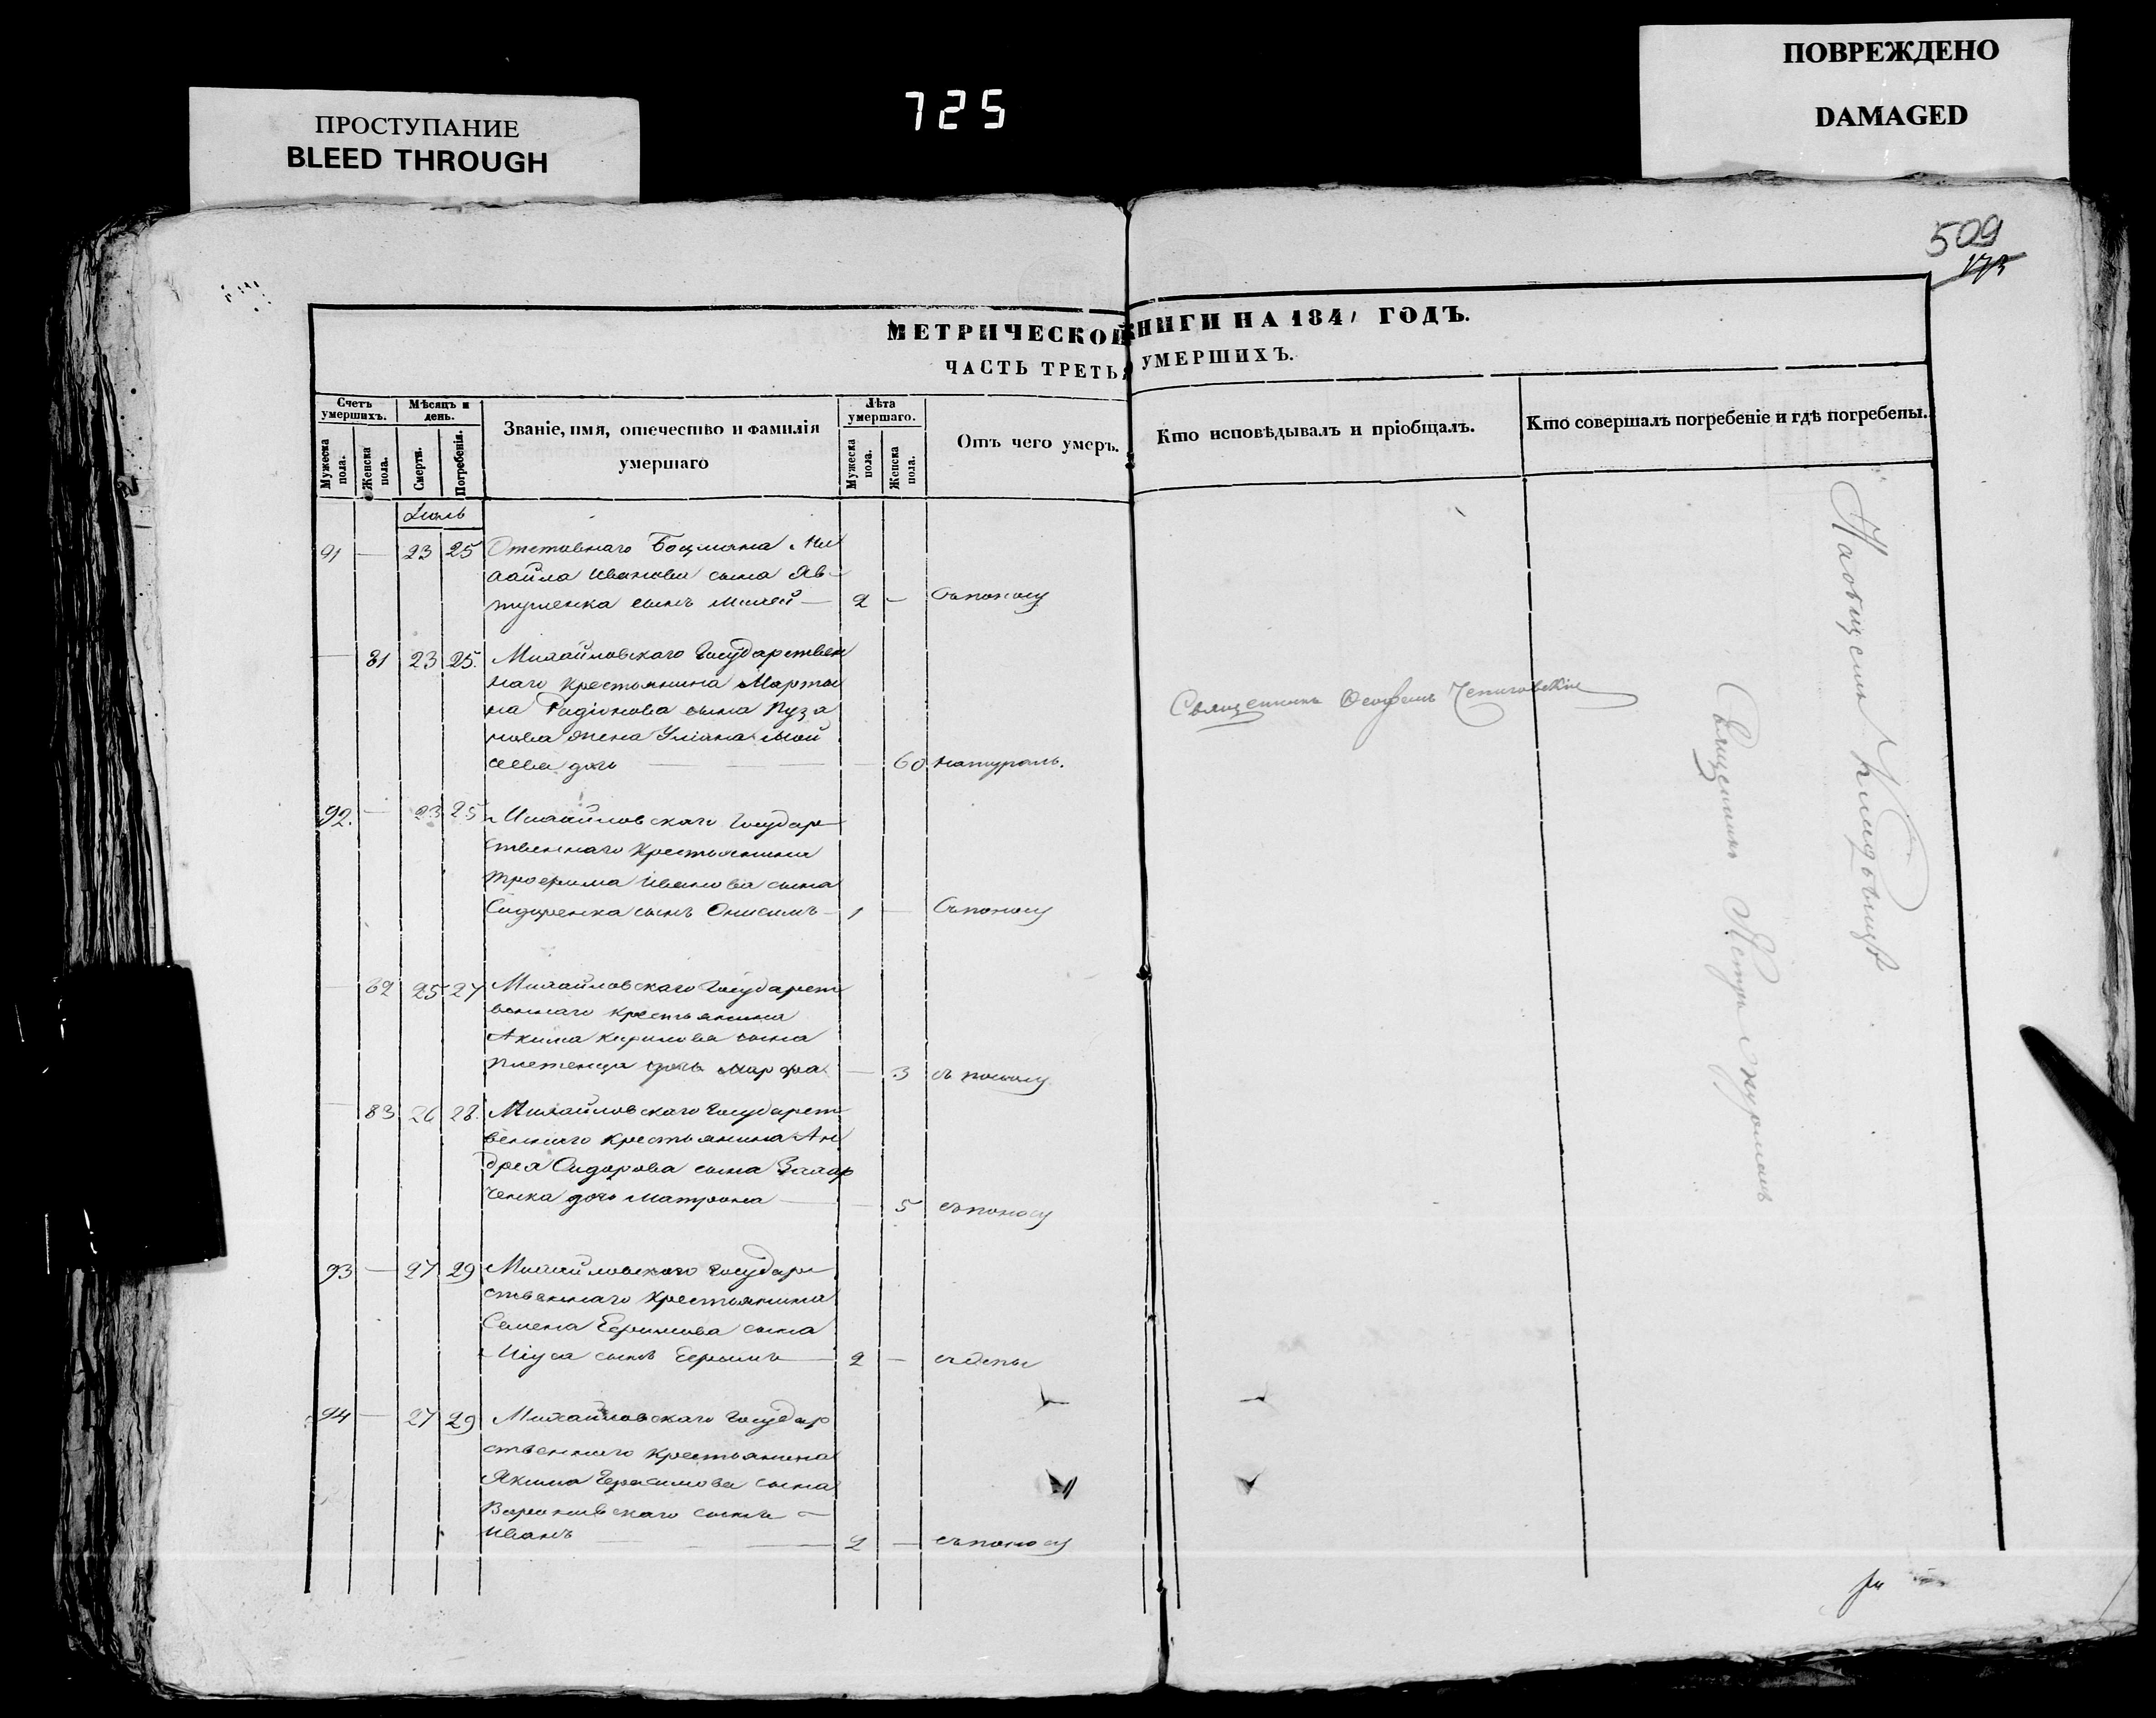 ПРОСТУПАНИЕ
BLEED THROUGH
725
ПОВРЕЖДЕНО
DAMAGED
509
173
МЕТРИЧЕСКОЙ КНИГИ НА 1841 ГОДЪ.
ЧАСТЬ ТРЕТЬЯ УМЕРШИХЪ.
Счетъ умершихъ.
Мужеска пола.
Женска пола.
Мѣсяцъ и день.
Смерти.
Погребенія.
Званіе, имя, отечество и фамилія
умершаго
Лѣта умершаго.
Мужеска пола.
Женска пола.
Отъ чего умеръ.
Кто исповѣдывалъ и пріобщалъ.
Кто совершалъ погребеніе и гдѣ погребены.
Июль
91 — 23 25 Отставнаго Боцмана Ми
хайла Иванова сына Яв-
тушенка сынъ — 2 — Съпоносу
— 81 23 25. Михайловскаго Государствен
наго крестьянина Марты
на Радіонова сына Пуза
нова жена Уліана Мой
сеева дочь — — 60 натураль.
92. — 23 25 Михайловскаго Государ
ственнаго Крестьянина
Трофима Иванова сына
Сидоренка сынъ Онисимъ — 1 — Съпоносу
— 82 25 27 Михайловскаго Государст
веннаго крестьянина
Акима Кирилова сына
Плетенца дочь Марфа — 3 съ поносу
— 83 26 28. Михайловскаго Государст
веннаго крестьянина Ан
дрея Сидорова сына Захар
ченка дочь Матрона — — 5 съпоносу
93 — 27 29 Михайловскаго Государ
ственнаго Крестьянина
Семена Ефимова сына
сынъ Ефимъ — 2 — съ оспы
94 — 27 29 Михайловскаго Государ
ственнаго крестьянина
Якима Герасимова сына
сынъ
Иванъ — 2 — съпоносу
Священникъ Феофанъ
На общемъ Кладбищѣ
Священникъ Петръ